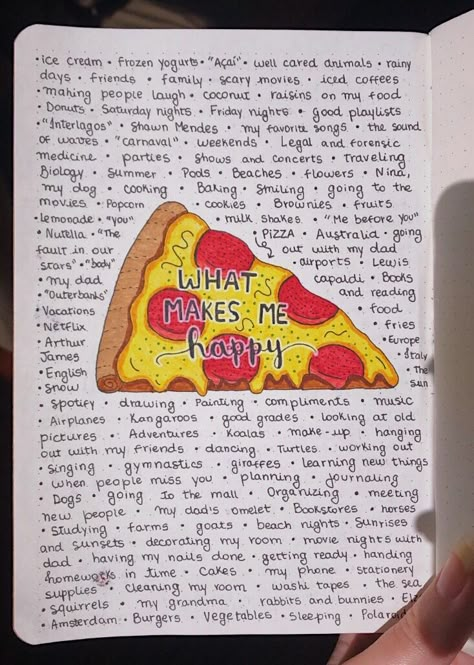 • ice cream • frozen yogurts • "Açaí" • well cared animals • rainy
days • friends • family • scary movies • iced coffees
• making people laugh • coconut • raisins on my food
• Donuts • Saturday nights • Friday nights • good playlists
• "Interlagos" • Shawn Mendes • my favorite songs • the sound
of waves • "carnaval" • weekends • Legal and forensic
medicine • parties • Shows and concerts • Traveling
Biology • Summer • Pods • Beaches • flowers • Nina,
my dog • cooking • Baking • Smiling • going to the
movies • Popcorn • cookies • Brownies • fruits
• lemonade • "you" • milk shakes • "Me before you"
• Nutella • "The • PIZZA • Australia • going
fault in our out with my dad
stars" • "body" • airports • Lewis
my dad capaldi • Books
• "Outerbanks" and reading
• Vacations • food
• Netflix • fries
• Arthur • Europe
James • Italy
• English • The
• Snow sun
WHAT
MAKES ME
happy
• Spotify • drawing • Painting • compliments • music
• Airplanes • Kangaroos • good grades • looking at old
pictures • Adventures • Koalas • make-up • hanging
out with my friends • dancing • Turtles • working out
• singing • gymnastics • giraffes • learning new things
• when people miss you • planning • journaling
• Dogs • going to the mall • Organizing • meeting
new people • my dad's omelet • Bookstores • horses
• studying • farms • goats • beach nights • Sunrises
and sunsets • decorating my room • movie nights with
dad • having my nails done • getting ready • handing
homeworks in time • Cakes • my phone • stationery
supplies • cleaning my room • washi tapes • the sea
• squirrels • my grandma • rabbits and bunnies
• Amsterdam • Burgers • Vegetables • Sleeping